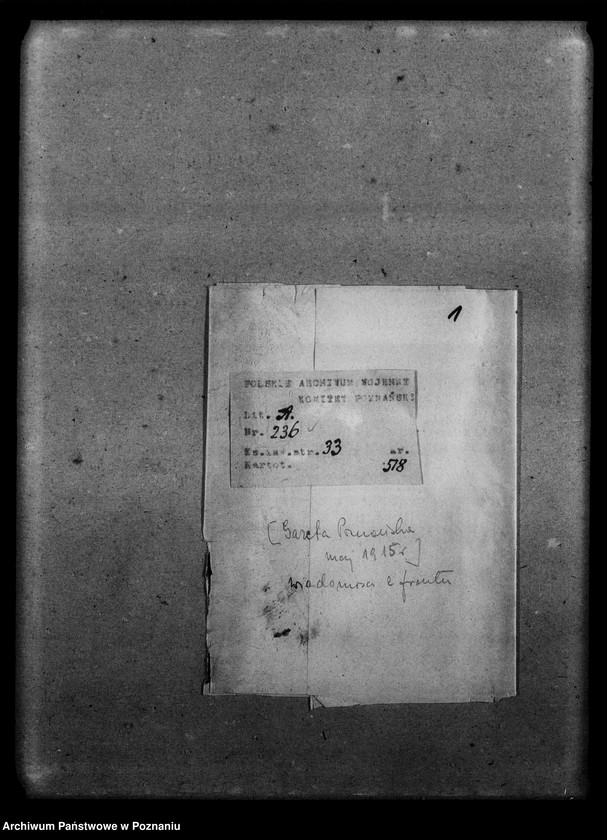 1
POLSKIE ARCHIWUM WOJENNE
KOMITET POZNAŃSKI
Lit. A.
Nr. 236
Ks.kas.str. 33 nr.
Kartot. 578
[Gazeta Poznańska
maj 1915r]
wiadomości z frontu
Archiwum Państwowe w Poznaniu